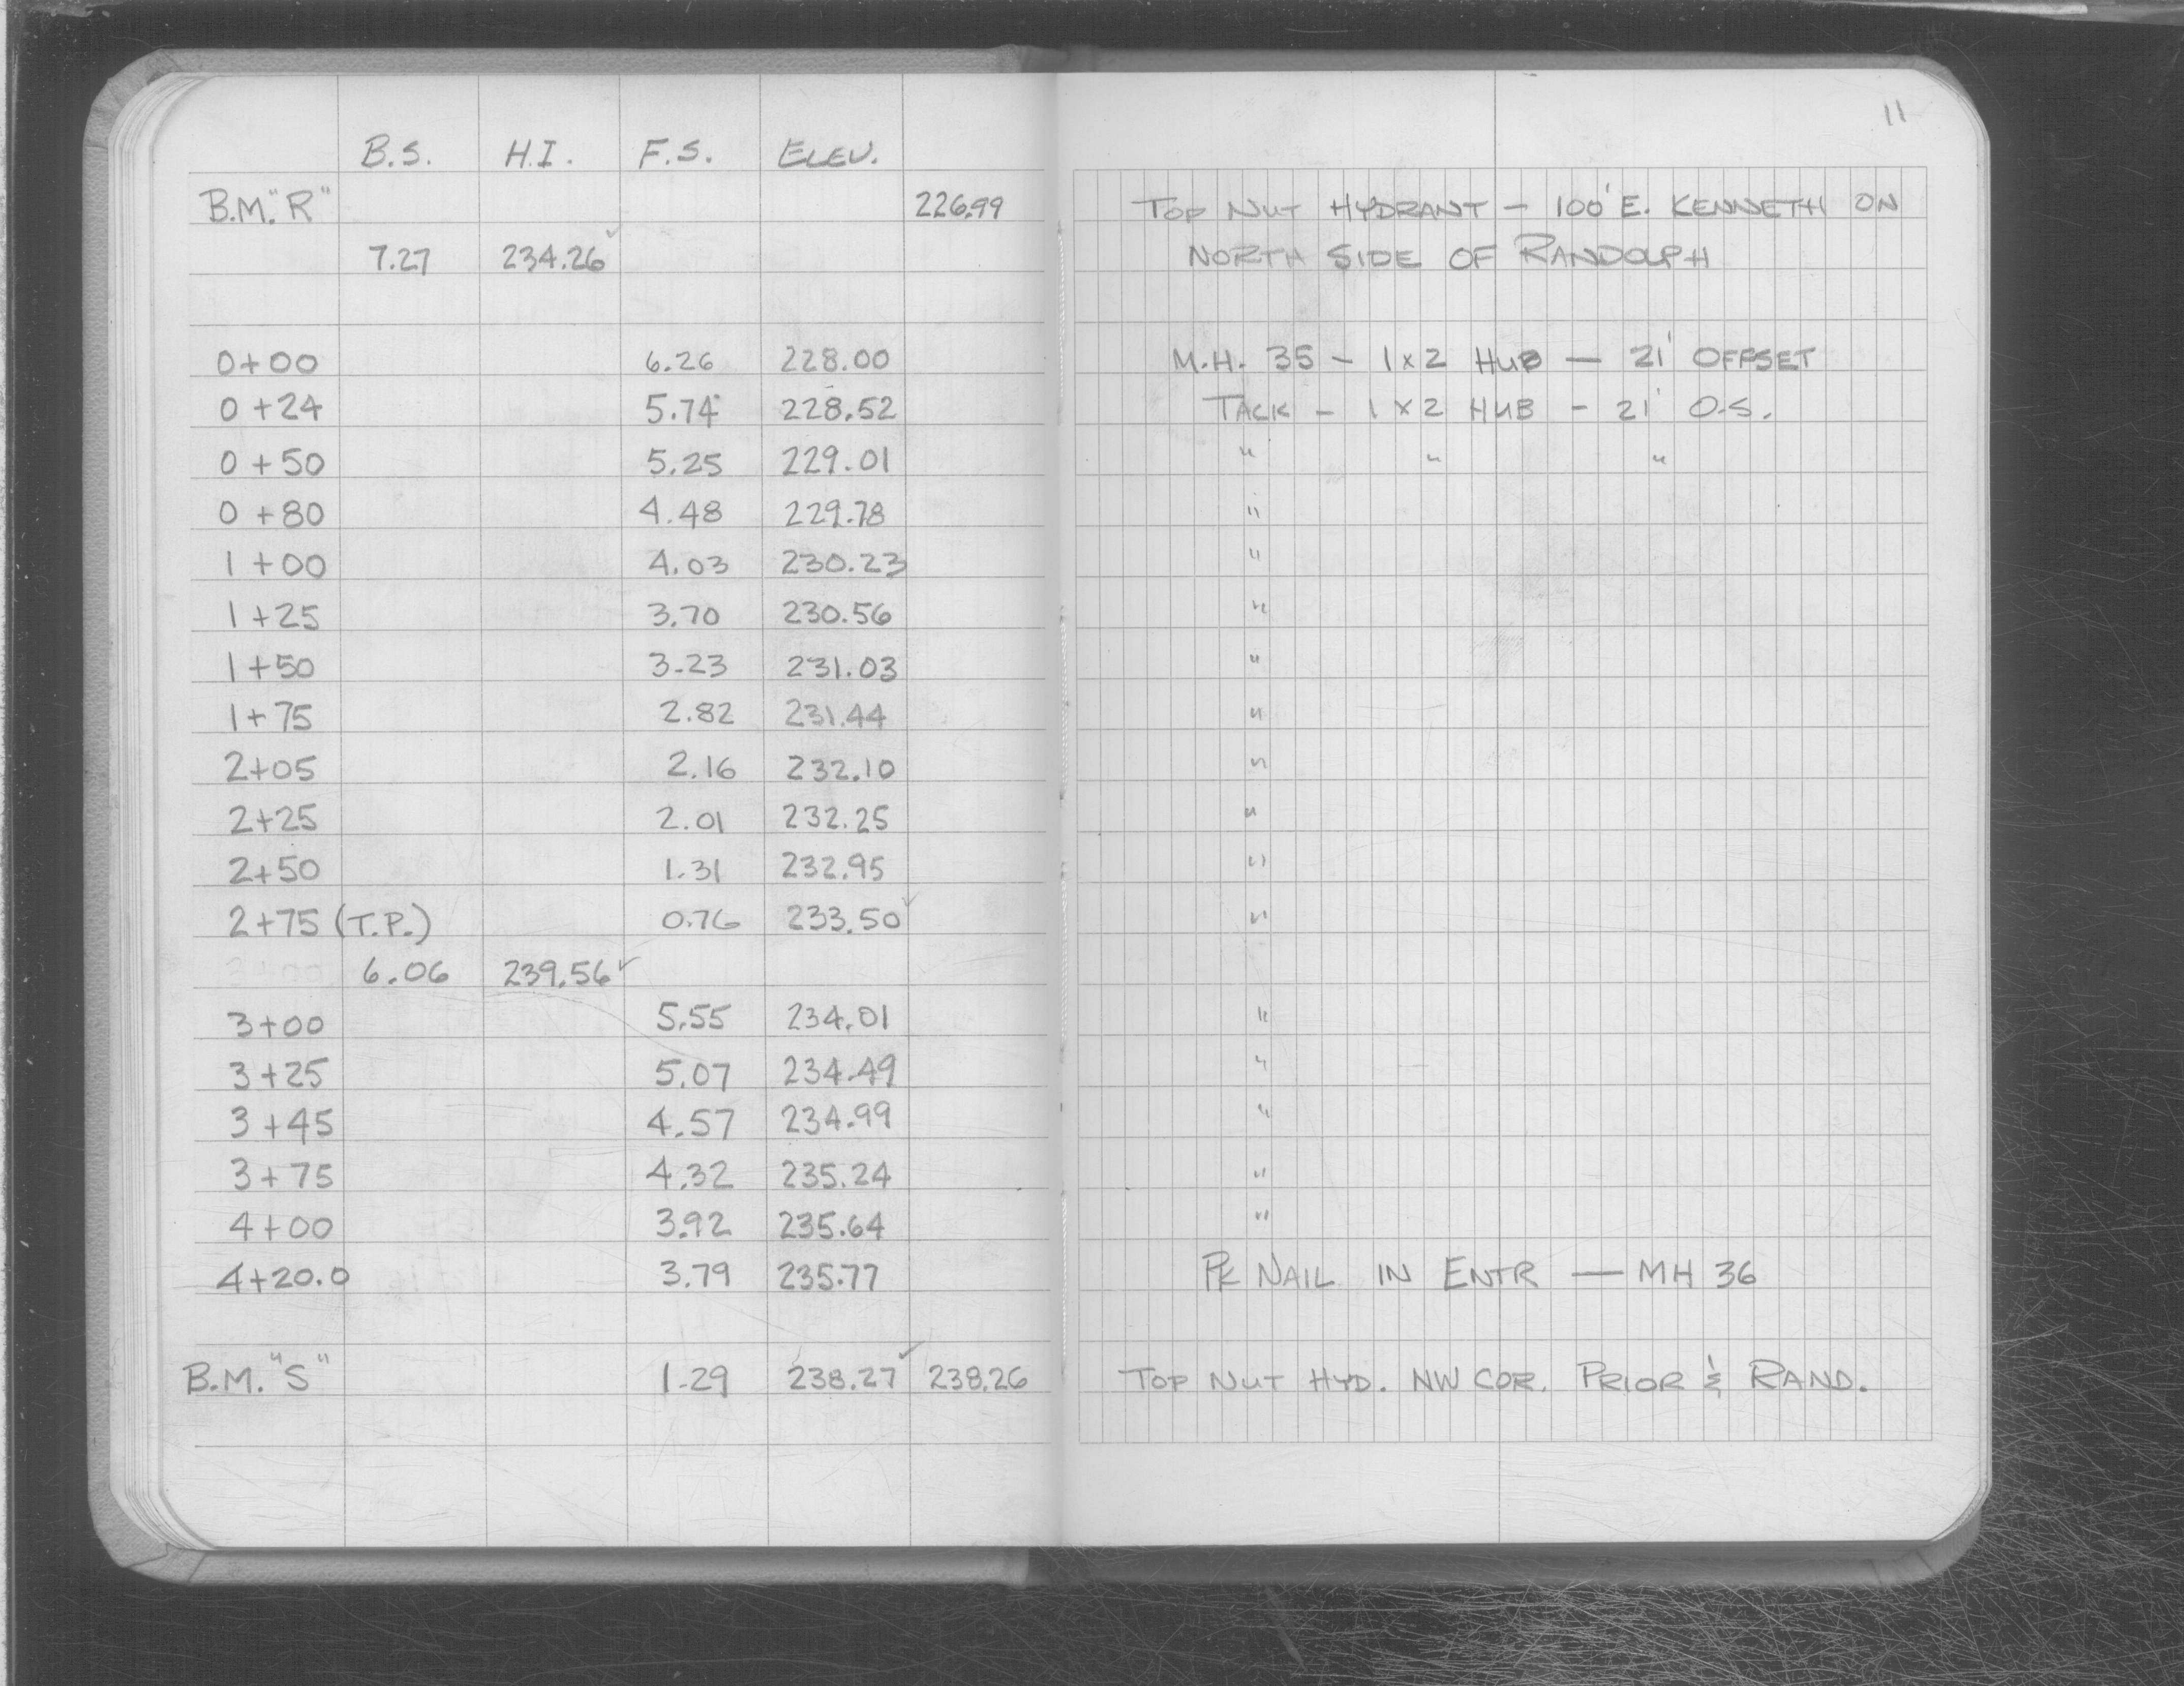 11
B.S. H.I. F.S. ELEV.
B.M. "R" 226.99 TOP NUT HYDRANT - 100' E. KENNETH ON
7.27 234.26 ✓ NORTH SIDE OF RANDOLPH
0+00 6.26 228.00 M.H. 35 - 1x2 HUB - 21' OFFSET
0+24 5.74 228.52 TACK - 1x2 HUB - 21' O.S.
0+50 5.25 229.01 " " "
0+80 4.48 229.78 "
1+00 4.03 230.23 "
1+25 3.70 230.56 "
1+50 3.23 231.03 "
1+75 2.82 231.44 "
2+05 2.16 232.10 "
2+25 2.01 232.25 "
2+50 1.31 232.95 "
2+75 (T.P.) 0.76 233.50 ✓ "
6.06 239.56 ✓
3+00 5.55 234.01 "
3+25 5.07 234.49 "
3+45 4.57 234.99 "
3+75 4.32 235.24 "
4+00 3.92 235.64 "
4+20.0 3.79 235.77 PK NAIL IN ENTR — MH 36
B.M. "S" 1.29 238.27 ✓ 238.26 TOP NUT HYD. NW COR. PRIOR & RAND.